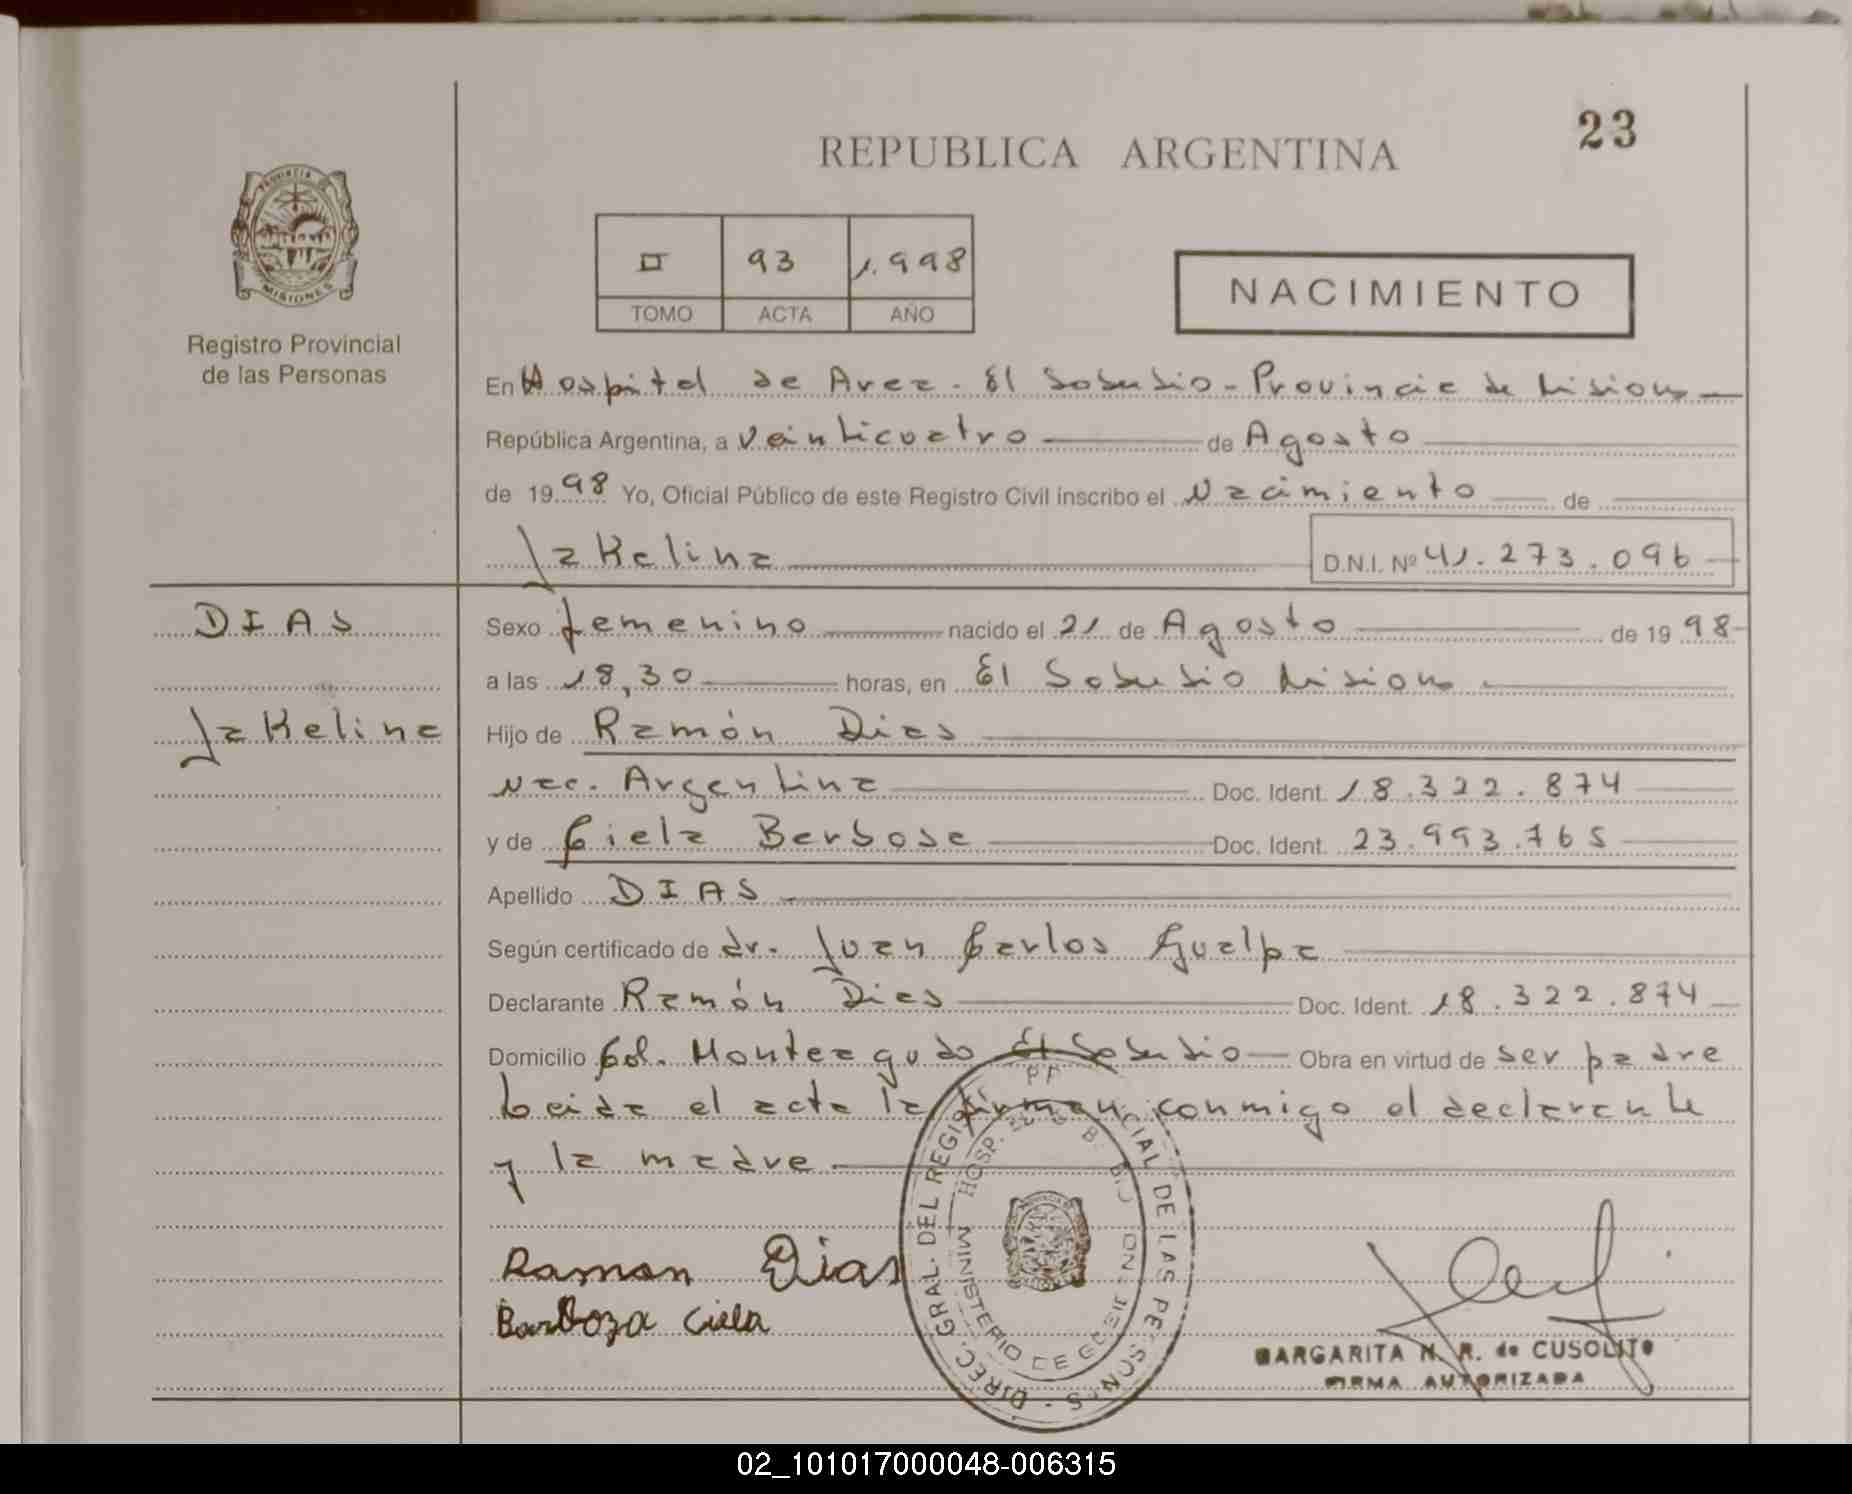 REPUBLICA ARGENTINA
23
PROVINCIA DE
MISIONES
Registro Provincial
de las Personas
II 93 1.998
TOMO ACTA AÑO
NACIMIENTO
En Hospital de Area. El Soberbio - Provincia de Misiones
República Argentina, a veinticuatro de Agosto
de 1998 Yo, Oficial Público de este Registro Civil inscribo el Nacimiento de
Jakelina D.N.I. Nº 41.273.096
DIAS
Jakelina
Sexo femenino nacido el 21 de Agosto de 1998
a las 18,30 horas, en El Soberbio Misiones
Hijo de Ramón Dias
Nac. Argentina Doc. Ident. 18.322.874
y de Ciela Barbosa Doc. Ident. 23.993.765
Apellido DIAS
Según certificado de dr. Juan Carlos Gualpa
Declarante Ramón Dias Doc. Ident. 18.322.874
Domicilio Col. Monteagudo El Soberbio Obra en virtud de ser padre
Leida el acta la firman conmigo el declarante
y la madre
Ramon Dias
Barboza Ciela
DIREC. GRAL. DEL REGIST. PROVINCIAL DE LAS PERSONAS
MINISTERIO DE HOSP.
MARGARITA N. R. de CUSOLITO
FIRMA AUTORIZADA
02_101017000048-006315